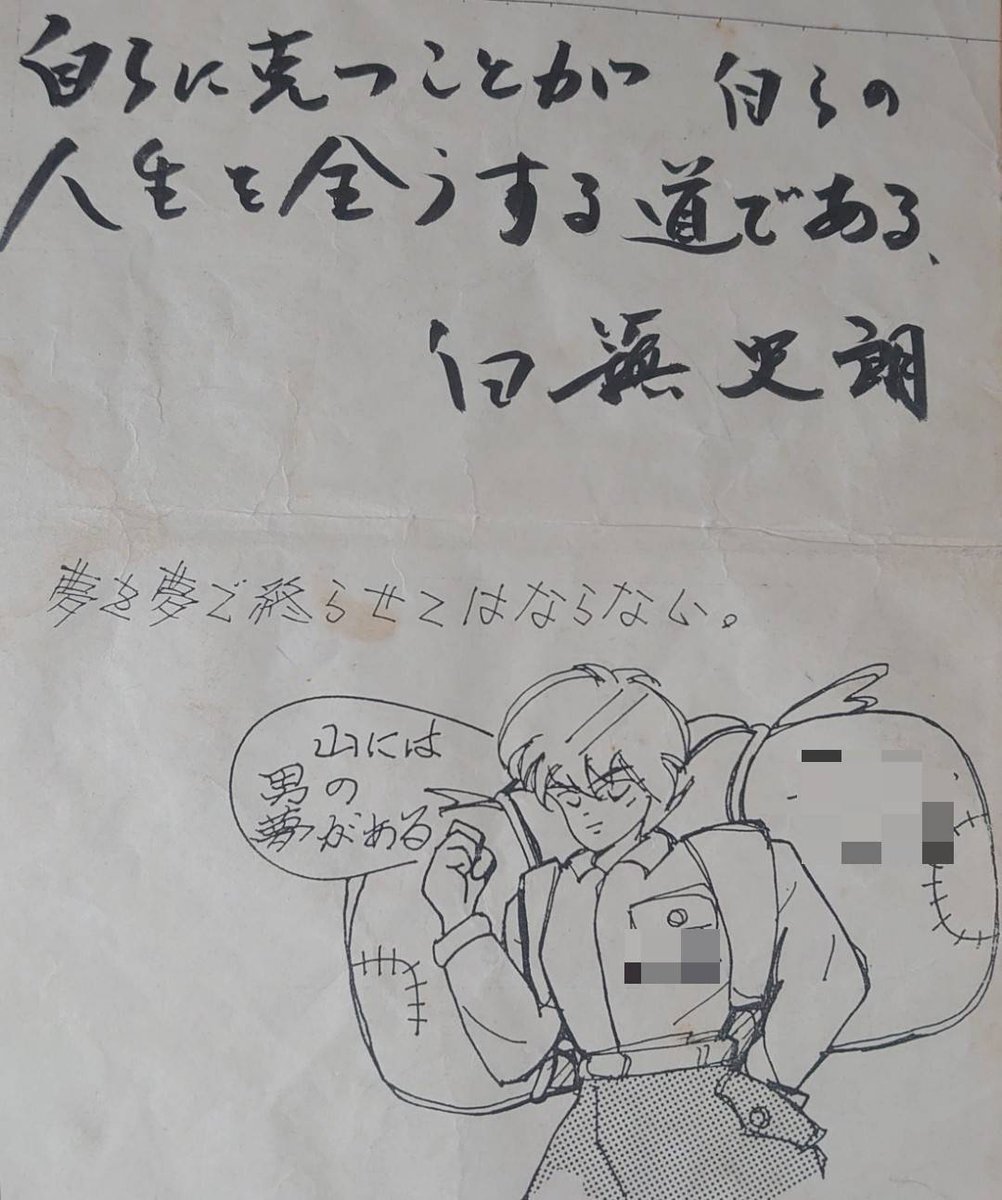 自らに克つことが 自らの
人生を全うする道である、
白籏史朗
夢を夢で終らせてはならない。
山には
男の
夢がある